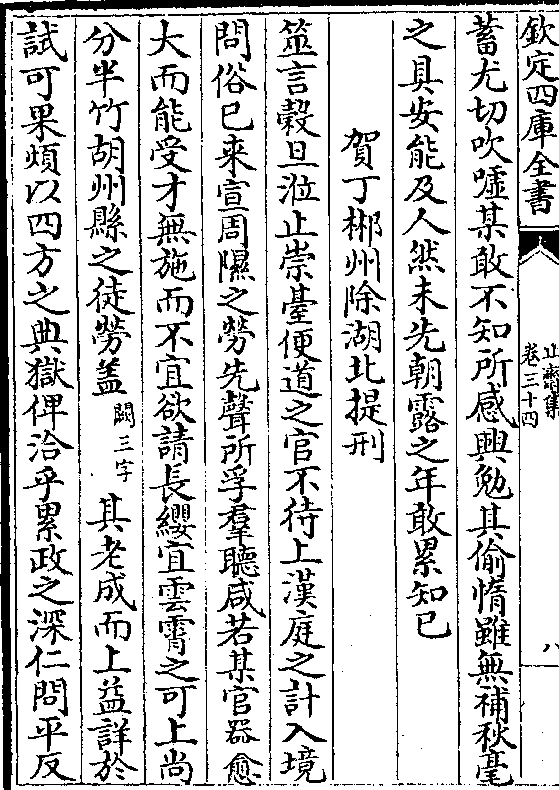 欽定四庫全書
止齋集
卷三十四
八
蓄尤切吹噓某敢不知所感興勉其偷惰雖無補秋毫
之具安能及人然未先朝露之年敢累知已
賀丁郴州除湖北提刑
筮言穀旦涖止崇臺便道之官不待上漢庭之計入境
問俗已来宣周隰之勞先聲所孚羣聽咸若某官器愈
大而能受才無施而不宜欲請長纓宜雲霄之可上尚
分半竹胡州縣之徒勞盖闕三字其老成而上益詳於
試可果煩以四方之典獄俾洽乎累政之深仁問平反